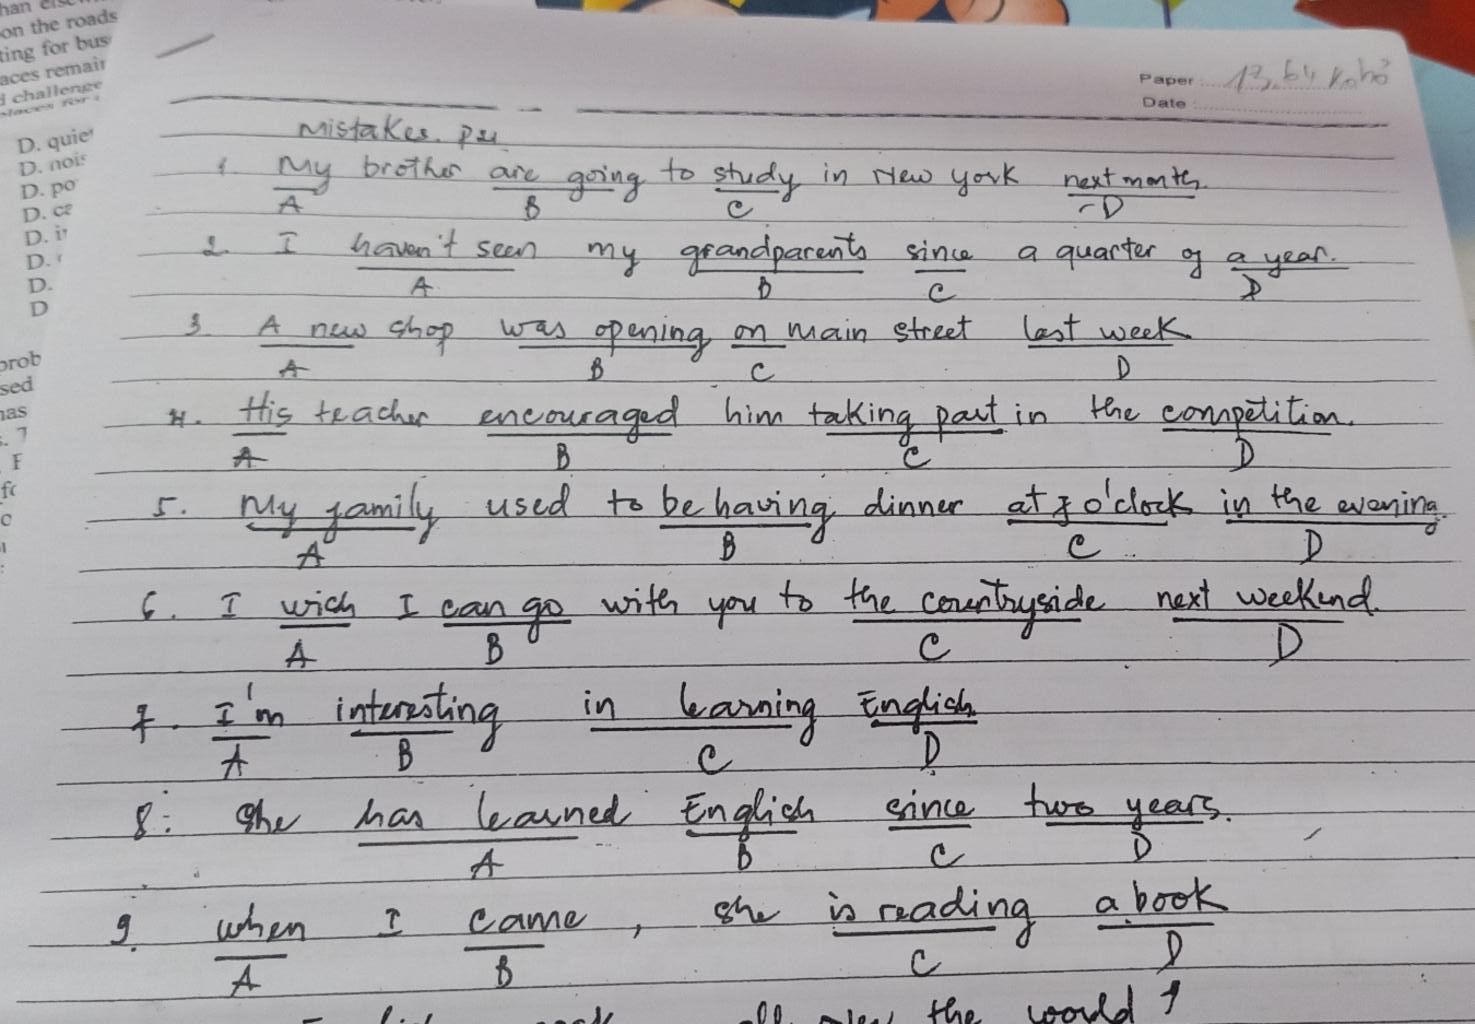 on the roads
ting for bus
aces remain
challenge
D. quie
D. nois
D. po
D. ce
D. i
D.
D.
D
prob
sed
has
Paper 13.64
Date
Mistakes.
1. My brother are going to study in New york next month.
A B C D
2. I haven't seen my grandparents since a quarter of a year.
A B C D
3. A new shop was opening on main street last week
A B C D
4. His teacher encouraged him taking part in the competition.
A B C D
5. My family used to be having dinner at 7 o'clock in the evening.
A B C D
6. I wich I can go with you to the countryside next weekend.
A B C D
7. I'm interesting in learning English
A B C D
8. She has learned English since two years.
A B C D
9. when I came, she is reading a book
A B C D
the would ?